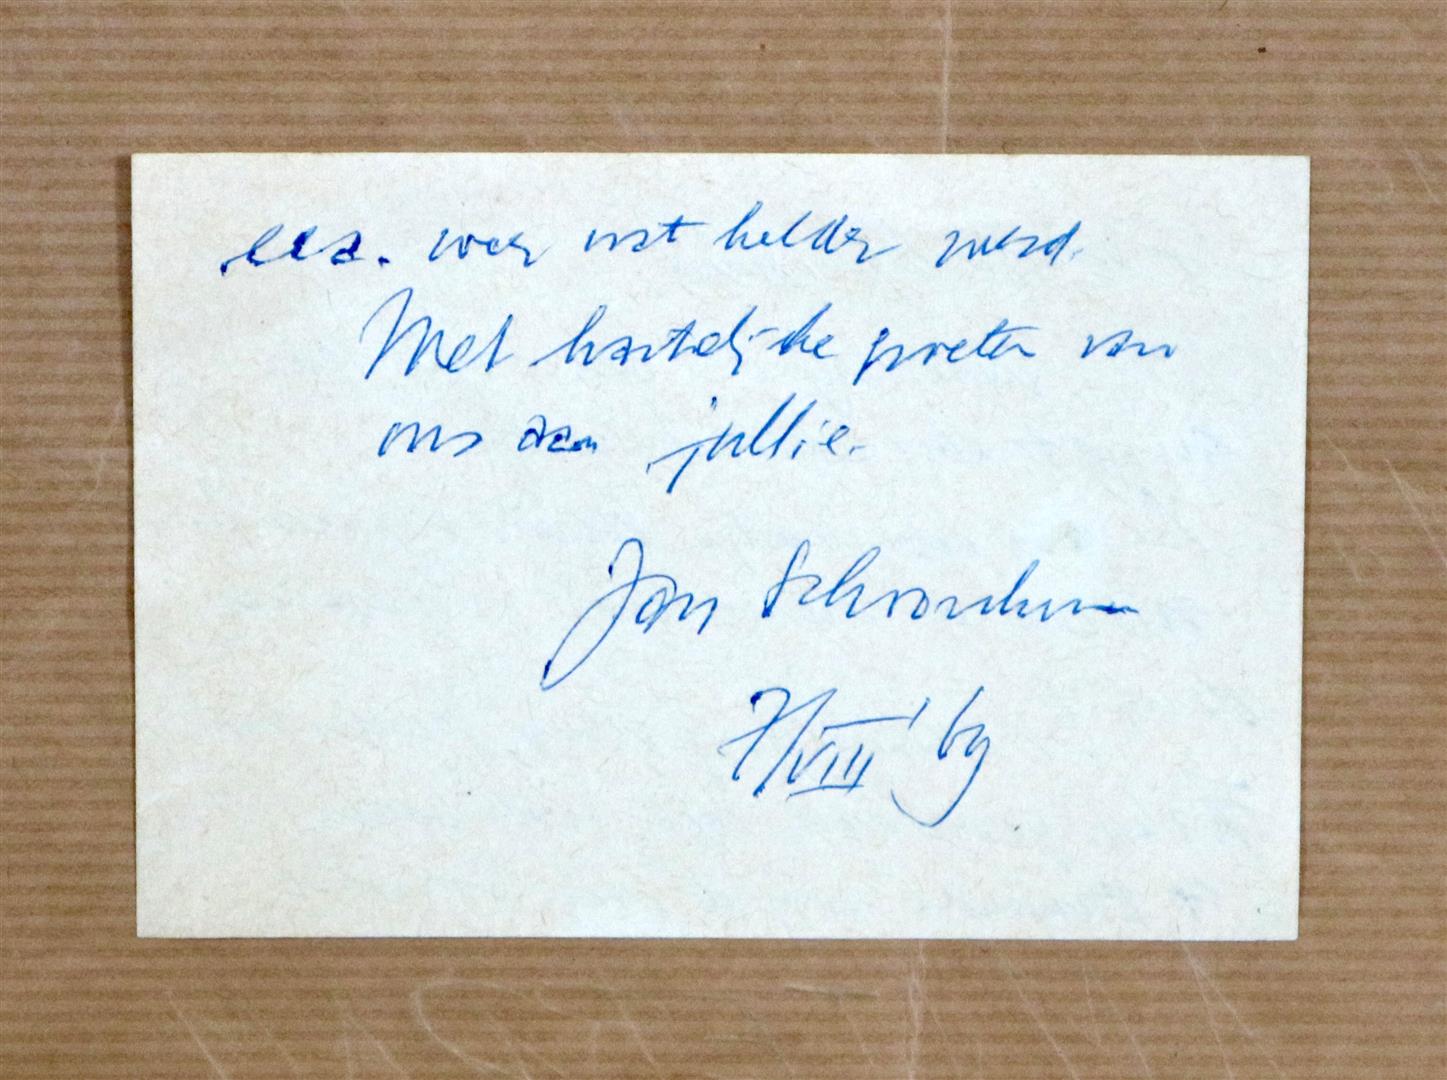 e.e.a. weer wat helder werd.
Met hartelijke groeten van
ons aan jullie.
Jan Schoonhoven
7/VIII '69